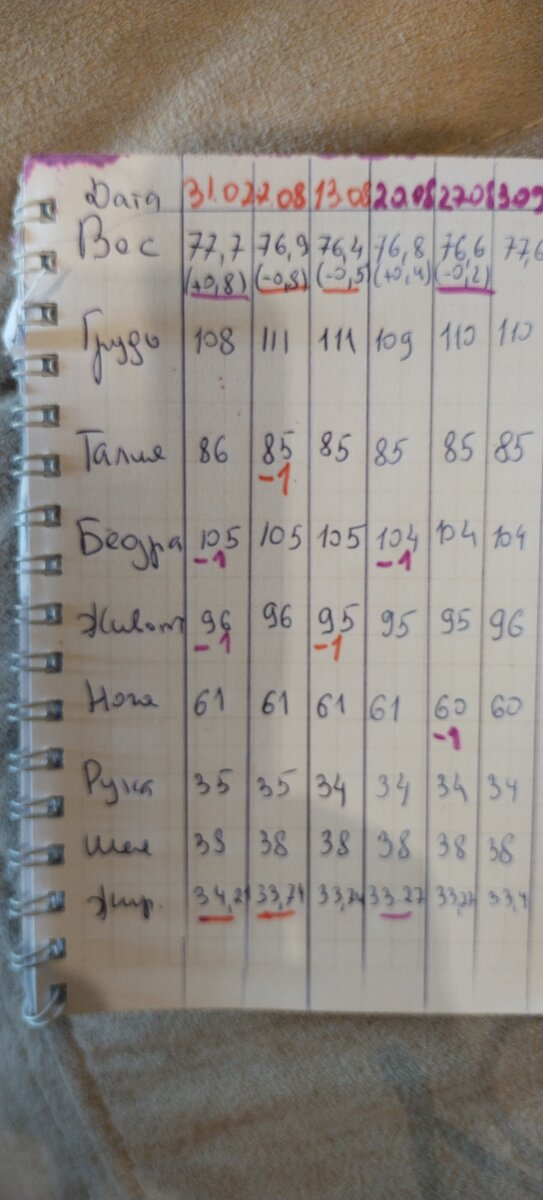 Дата 31.07 7.08 13.08 20.08 27.08 3.09
Вес 77,7 76,9 76,4 76,8 76,6 77,6
(+0,8) (-0,8) (-0,5) (+0,4) (-0,2)
Грудь 108 111 111 109 110 110
Талия 86 85 85 85 85 85
-1
Бедра 105 105 105 104 104 104
-1 -1
Живот 96 96 95 95 95 96
-1 -1
Нога 61 61 61 61 60 60
-1
Рука 35 35 34 34 34 34
Шея 38 38 38 38 38 38
Жир. 34,21 33,71 33,27 33,27